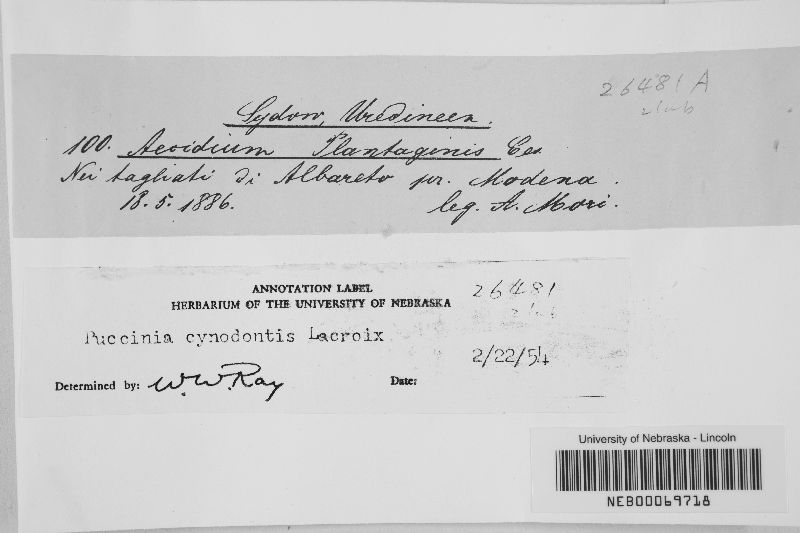 26481 A
Sydow, Uredineen.
100. Aecidium Plantaginis Ces
Nei tagliati di Albareto pr. Modena.
18. 5. 1886. leg. A. Mori.
ANNOTATION LABEL
HERBARIUM OF THE UNIVERSITY OF NEBRASKA
26481
Puccinia cynodontis Lacroix
2/22/54
Determined by: W. W. Ray Date:
University of Nebraska - Lincoln
NEB00069718